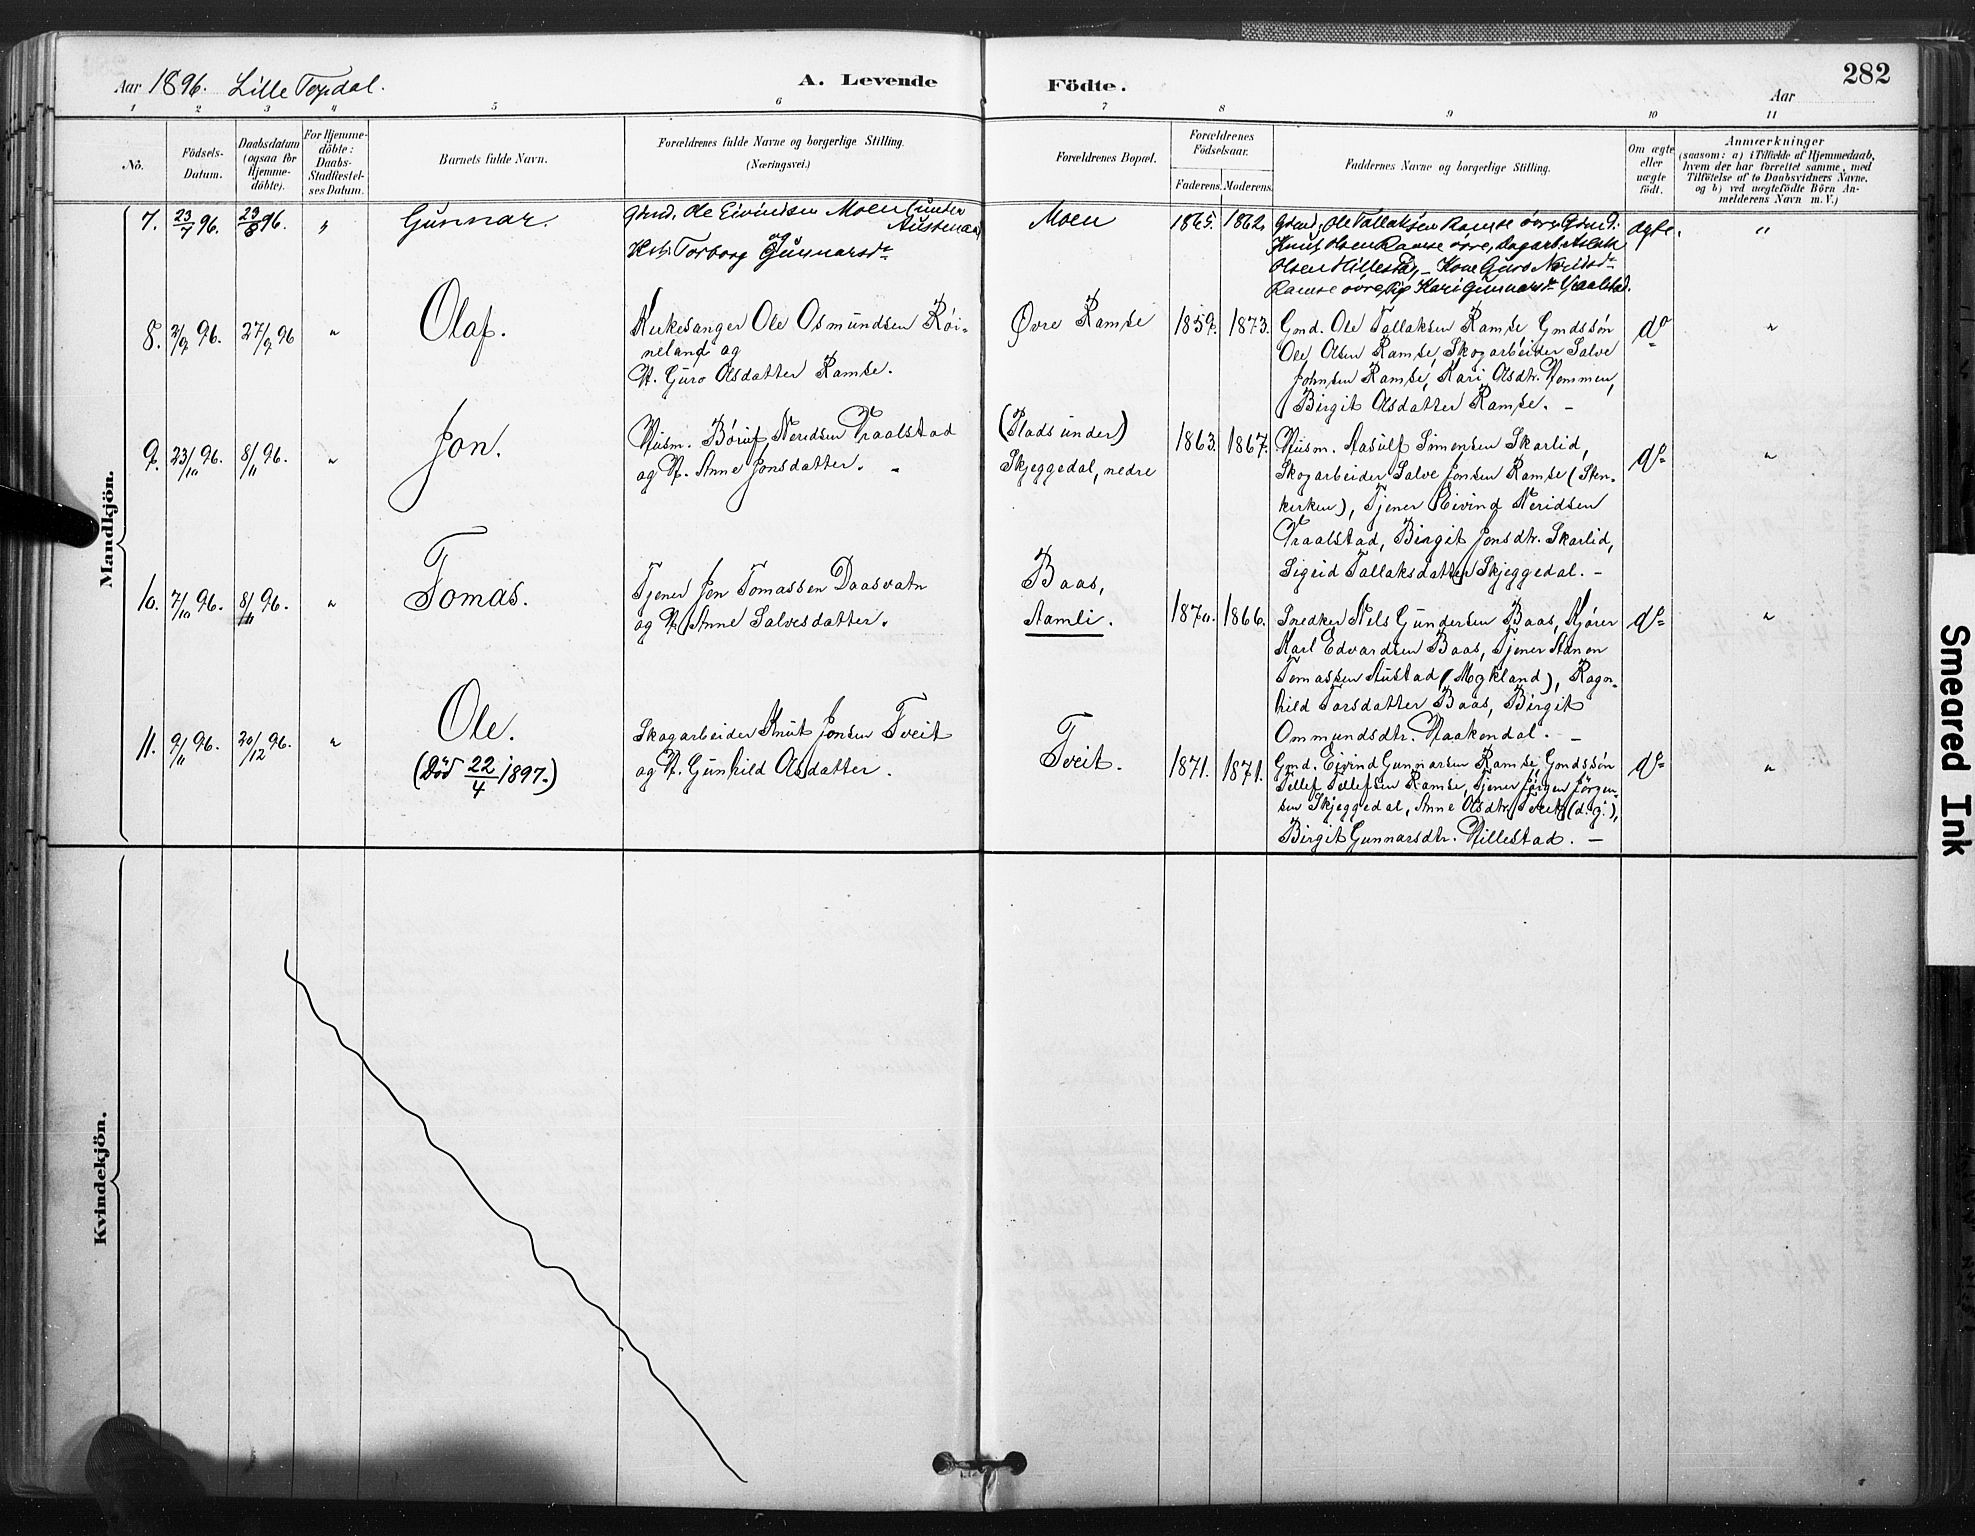 282
Aar 1896. Lille Topdal.
A. Levende Födte.
Aar
1 2 3 4 5 6 7 8 9 10 11
No.
Födsels-Datum.
Daabsdatum (ogsaa for Hjemme-döbte).
For Hjemme-döbte: Daabs-Stadfæstel-ses Datum.
Barnets fulde Navn.
Forældrenes fulde Navne og borgerlige Stilling.
(Næringsvei.)
Forældrenes Bopæl.
Forældrenes Födselsaar.
Faderens. Moderens.
Faddernes Navne og borgerlige Stilling.
Om ægte eller uægte födt.
Anmærkninger
(saasom: a) i Tilfælde af Hjemmedaab,
hvem der har forrettet samme, med
Tilföielse af to Daabsvidners Navne,
og b) ved uægtefödte Börn An-
melderens Navn m. V.)
Mandkjön.
7. 23/7 96. 23/8 96. " Gunnar.
Gdmd. Ole Eivindsen Moen (under Austenaa)
og
Hst. Torborg Gunnarsdr
Moen 1865. 1862.
Gdmd. Ole Tallaksen Ramse övre, Gdmd.
Knut Olsen Ramse övre, Dagarb. Aslak
Olsen Hillestad, – Kone Guro Neridsdr
Ramse övre, Pig Kari Gunnarsdr Vraalstad.
ægte. "
8. 2/9 96. 27/9 96 " Olaf.
Kirkesanger Ole Osmundsen Röi-
neland og
H. Guro Olsdatter Ramse.
Øvre Ramse 1859. 1873.
Gmd. Ole Tallaksen Ramse, Gmdssön
Ole Olsen Ramse, Skogarbeider Salve
Johnsen Ramse, Kari Olsdtr. Hommen,
Birgit Olsdatter Ramse. –
do "
9. 23/10 96. 8/11 96. " Jon.
Husm. Böruf Neridsen Vraalstad
og H. Anne Jonsdatter. –
(Plads under)
Skjeggedal, nedre
1863. 1867.
Husm. Aasulf Simonsen Skarlid,
Skogarbeider Salve Jonsen Ramse (Sten-
kirken), Tjener Eivind Neridsen
Vraalstad, Birgit Jonsdtr. Skarlid,
Sigrid Tallaksdatter Skjeggedal. –
do "
10. 7/10 96. 8/11 96. " Tomas.
Tjener Jon Tomassen Daasvatn
og H. Anne Salvesdatter.
Baas,
Aamli.
1870. 1866.
Snedker Nels Gundersen Baas, Kjörer
Karl Edvardsen Baas, Tjener Aanon
Tomassen Austad (Mykland), Ragn-
hild Tarsdatter Baas, Birgit
Ommundsdtr. Haakendal. –
do "
11. 9/11 96. 20/12 96. " Ole.
(Död 22/4 1897.)
Skogarbeider Knut Jonsen Tveit
og H. Gunhild Olsdatter.
Tveit. 1871. 1871.
Gmd. Eivind Gunnarsen Ramse, Gmdssön
Tellef Tellefsen Ramse, Tjener Jörgen Jörgen-
sen Skjeggedal, Anne Olsdtr. Tveit (d. y.),
Birgit Gunnarsdtr. Hillestad. –
do "
Kvindekjön.
Smeared Ink